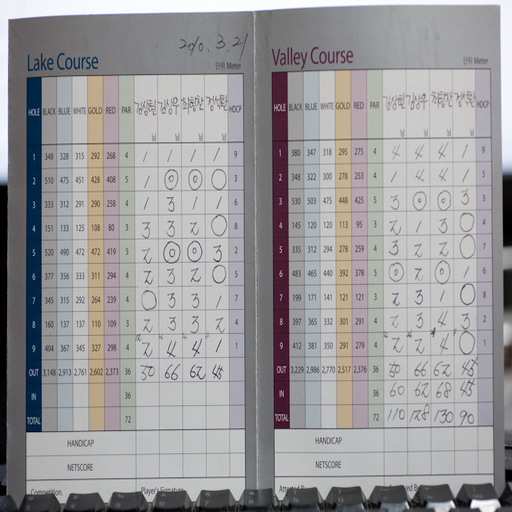 2010. 3. 21
Lake Course
단위 Meter
HOLE BLACK BLUE WHITE GOLD RED PAR 김상현님 김상우님 최형찬님 HDCP
1 348 328 315 292 268 4 1 1 1 1 9
2 510 475 451 428 408 5 1 ◎ ◎ ○ 3
3 333 312 291 290 258 4 1 3 1 1
4 151 133 125 108 80 3 3 3 2 ○ 8
5 520 490 472 472 419 5 2 ◎ ◎ 3 2
6 377 356 333 311 294 4 2 3 2 ○ 5
7 345 315 292 264 239 4 ○ 3 3 1 7
8 160 137 137 110 109 3 2 3 3 2 4
9 404 367 345 327 298 4 2 4 4 1 1
OUT 3,148 2,913 2,761 2,602 2,373 36 50 66 62 45
IN 36
TOTAL 72
HANDICAP
NETSCORE
Competition. Player's Signature
Valley Course
단위 Meter
HOLE BLACK BLUE WHITE GOLD RED PAR 김상현님 김상우님 최형찬님 HDCP
1 380 347 318 295 275 4 4 4 4 1 9
2 348 322 300 278 253 4 1 4 4 1
3 530 503 475 448 425 5 3 ◎ ◎ 3
4 145 120 120 113 95 3 2 1 3 ○
5 335 312 294 278 259 4 3 2 2 ○
6 483 465 440 392 378 5 ◎ 2 ◎ 1
7 199 171 141 121 121 3 2 3 1 ○ 8
8 397 365 332 301 291 4 2 3 4 3
9 412 381 350 291 279 4 2 2 4 ○ 1
OUT 3,229 2,986 2,770 2,517 2,376 36 50 66 62 45
IN 36 60 62 68 45
TOTAL 72 110 128 130 90
HANDICAP
NETSCORE